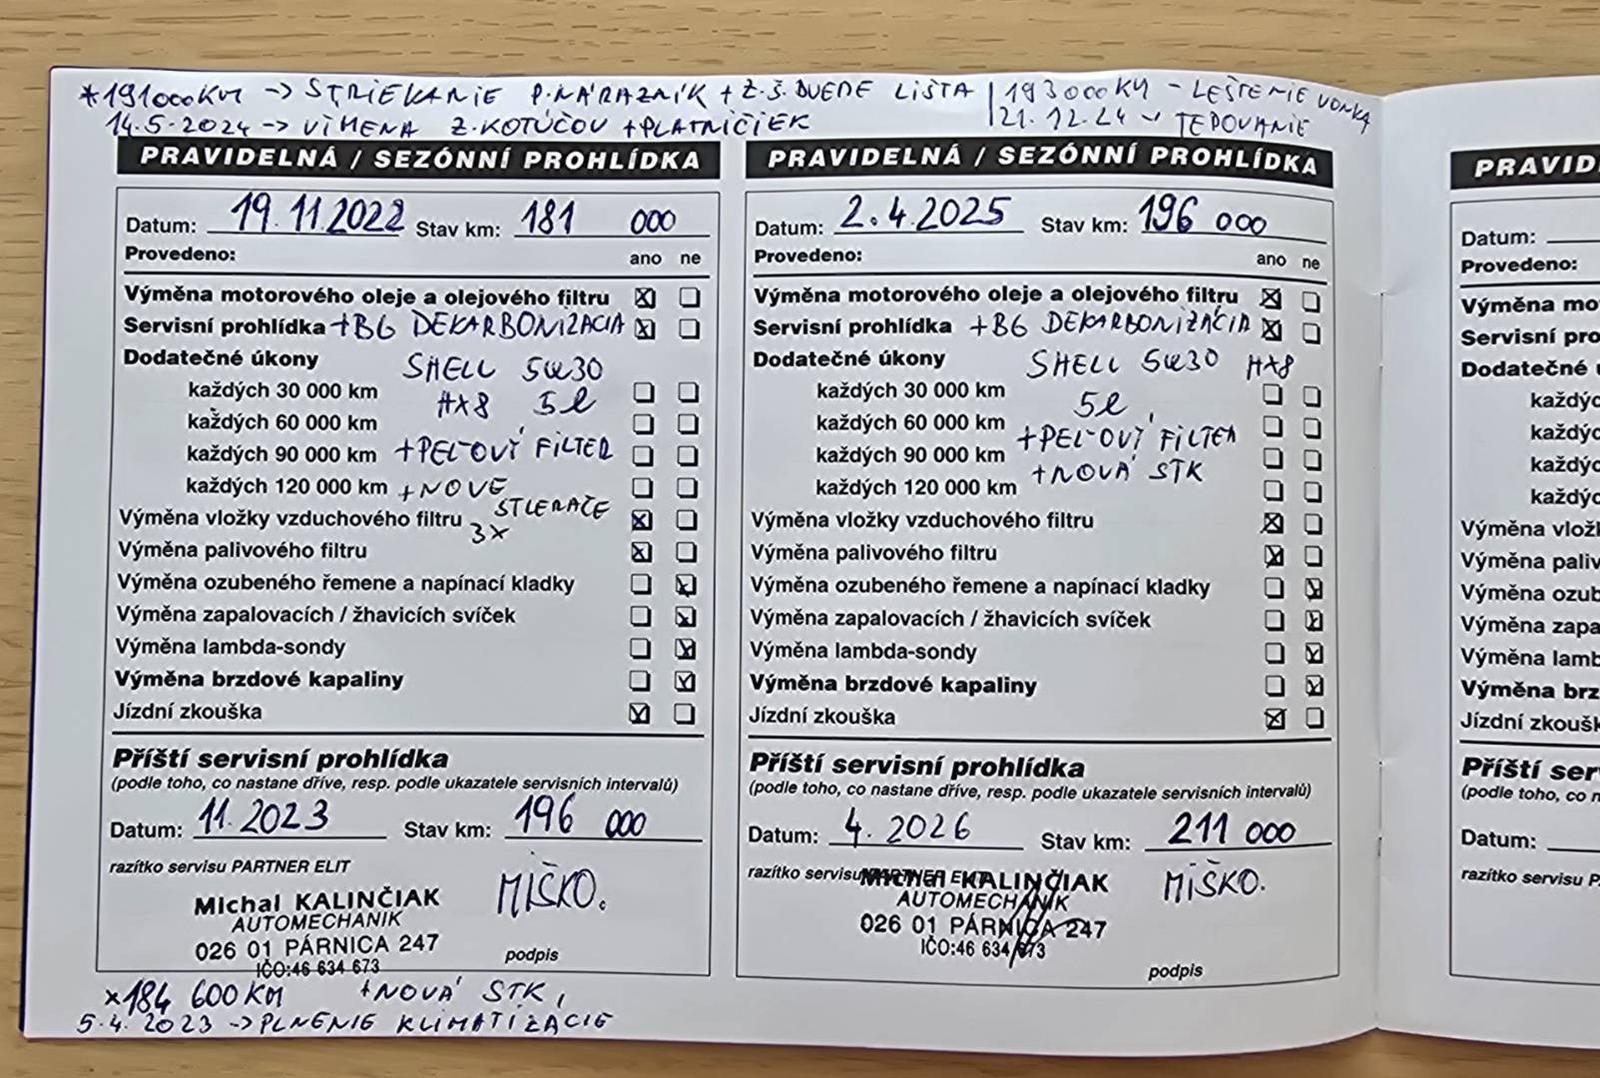 *191000KM -> STRIEKANIE P.NÁRAZNÍK + Z.Š. DVERE LIŠTA
14.5.2024 -> VÍMENA Z.KOTÚČOV + PLATNIČIEK
193000KM - LEŠTENIE VONKA
21.12.24 - TEPOVANIE
PRAVIDELNÁ / SEZÓNNÍ PROHLÍDKA
Datum: 19.11.2022 Stav km: 181 000
Provedeno: ano ne
Výměna motorového oleje a olejového filtru
Servisní prohlídka +BG DEKARBONIZACIA
Dodatečné úkony SHELL 5W30
každých 30 000 km HX8 5l
každých 60 000 km
každých 90 000 km +PEĽOVÝ FILTER
každých 120 000 km +NOVE STIERAČE
Výměna vložky vzduchového filtru 3x
Výměna palivového filtru
Výměna ozubeného řemene a napínací kladky
Výměna zapalovacích / žhavicích svíček
Výměna lambda-sondy
Výměna brzdové kapaliny
Jízdní zkouška
Příští servisní prohlídka
(podle toho, co nastane dříve, resp. podle ukazatele servisních intervalů)
Datum: 11.2023 Stav km: 196 000
razítko servisu PARTNER ELIT
Michal KALINČIAK MIŠKO.
AUTOMECHANIK
026 01 PÁRNICA 247
podpis
IČO:46 634 673
x184 600KM +NOVÁ STK,
5.4.2023 -> PLNENIE KLIMATIZÁCIE
PRAVIDELNÁ / SEZÓNNÍ PROHLÍDKA
Datum: 2.4.2025 Stav km: 196 000
Provedeno: ano ne
Výměna motorového oleje a olejového filtru
Servisní prohlídka +BG DEKARBONIZÁCIA
Dodatečné úkony SHELL 5W30 HX8
každých 30 000 km 5l
každých 60 000 km +PEĽOVÝ FILTER
každých 90 000 km +NOVÁ STK
každých 120 000 km
Výměna vložky vzduchového filtru
Výměna palivového filtru
Výměna ozubeného řemene a napínací kladky
Výměna zapalovacích / žhavicích svíček
Výměna lambda-sondy
Výměna brzdové kapaliny
Jízdní zkouška
Příští servisní prohlídka
(podle toho, co nastane dříve, resp. podle ukazatele servisních intervalů)
Datum: 4.2026 Stav km: 211 000
razítko servisu PARTNER ELIT
Michal KALINČIAK MIŠKO.
AUTOMECHANIK
026 01 PÁRNICA 247
IČO:46 634 673
podpis
PRAVID
Datum:
Provedeno:
Výměna mo
Servisní pro
Dodatečné
každýc
každýc
každýc
každýc
Výměna vlož
Výměna paliv
Výměna ozub
Výměna zapa
Výměna lamb
Výměna brz
Jízdní zkoušk
Příští ser
(podle toho, co n
Datum:
razítko servisu P